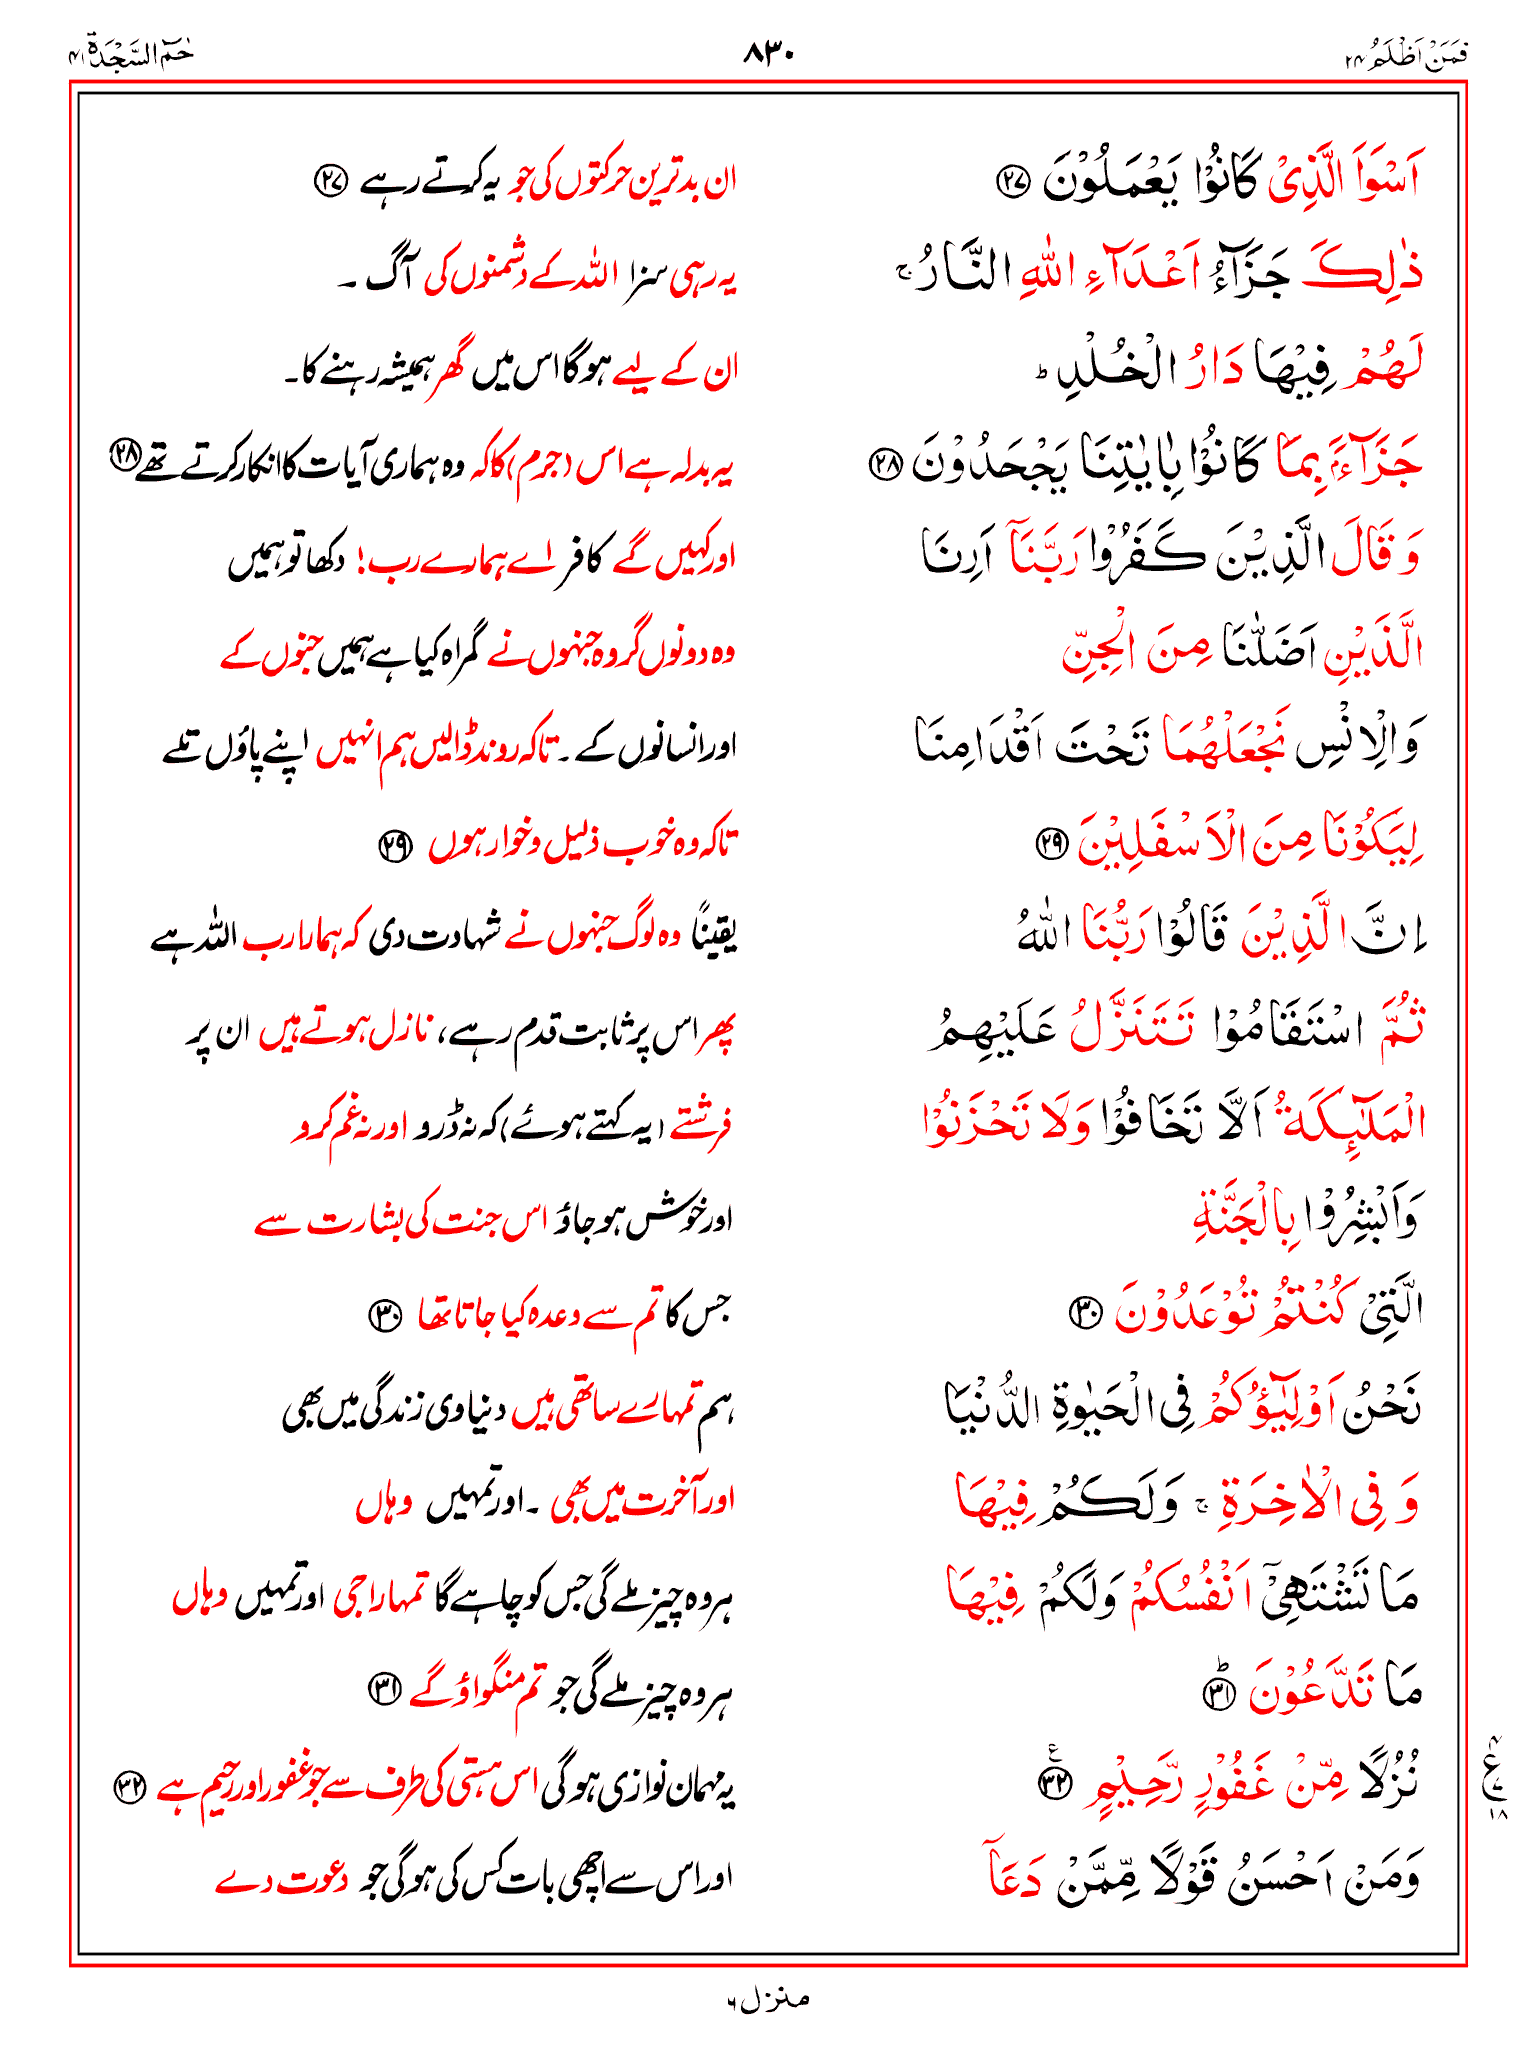 فَمَنْ اَظْلَمُ ۲۴ ۸۳۰ حٰمٓ السَّجْدَة ۴۱
اَسْوَاَ الَّذِیْ كَانُوْا یَعْمَلُوْنَ ۲۷ ان بدترین حرکتوں کی جو یہ کرتے رہے ۲۷
ذٰلِكَ جَزَآءُ اَعْدَآءِ اللّٰهِ النَّارُ ۚ یہ رہی سزا اللہ کے دشمنوں کی آگ ۔
لَهُمْ فِیْهَا دَارُ الْخُلْدِ ؕ ان کے لیے ہوگا اس میں گھر ہمیشہ رہنے کا۔
جَزَآءًۢ بِمَا كَانُوْا بِاٰیٰتِنَا یَجْحَدُوْنَ ۲۸ یہ بدلہ ہے اس (جرم) کا کہ وہ ہماری آیات کا انکار کرتے تھے ۲۸
وَ قَالَ الَّذِیْنَ كَفَرُوْا رَبَّنَاۤ اَرِنَا اور کہیں گے کافر اے ہمارے رب! دکھا تو ہمیں
الَّذَیْنِ اَضَلّٰنَا مِنَ الْجِنِّ وہ دونوں گروہ جنہوں نے گمراہ کیا ہے ہمیں جنوں کے
وَالْاِنْسِ نَجْعَلْهُمَا تَحْتَ اَقْدَامِنَا اور انسانوں کے ۔ تاکہ روند ڈالیں ہم انہیں اپنے پاؤں تلے
لِیَكُوْنَا مِنَ الْاَسْفَلِیْنَ ۲۹ تاکہ وہ خوب ذلیل و خوار ہوں ۲۹
اِنَّ الَّذِیْنَ قَالُوْا رَبُّنَا اللّٰهُ یقیناً وہ لوگ جنہوں نے شہادت دی کہ ہمارا رب اللہ ہے
ثُمَّ اسْتَقَامُوْا تَتَنَزَّلُ عَلَیْهِمُ پھر اس پر ثابت قدم رہے، نازل ہوتے ہیں ان پر
الْمَلٰٓىِٕكَةُ اَلَّا تَخَافُوْا وَلَا تَحْزَنُوْا فرشتے (یہ کہتے ہوئے) کہ نہ ڈرو اور نہ غم کرو
وَاَبْشِرُوْا بِالْجَنَّةِ اور خوش ہو جاؤ اس جنت کی بشارت سے
الَّتِیْ كُنْتُمْ تُوْعَدُوْنَ ۳۰ جس کا تم سے وعدہ کیا جاتا تھا ۳۰
نَحْنُ اَوْلِیٰٓؤُكُمْ فِی الْحَیٰوةِ الدُّنْیَا ہم تمہارے ساتھی ہیں دنیاوی زندگی میں بھی
وَ فِی الْاٰخِرَةِ ۚ وَلَكُمْ فِیْهَا اور آخرت میں بھی ۔ اور تمہیں وہاں
مَا تَشْتَهِیْۤ اَنْفُسُكُمْ وَلَكُمْ فِیْهَا ہر وہ چیز ملے گی جس کو چاہے گا تمہارا جی اور تمہیں وہاں
مَا تَدَّعُوْنَ ؕ ۳۱ ہر وہ چیز ملے گی جو تم منگواؤ گے ۳۱
نُزُلًا مِّنْ غَفُوْرٍ رَّحِیْمٍ ۳۲ ع یہ مہمان نوازی ہوگی اس ہستی کی طرف سے جو غفور اور رحیم ہے ۳۲
ع ۴ ۷ ۱۸
وَمَنْ اَحْسَنُ قَوْلًا مِّمَّنْ دَعَاۤ اور اس سے اچھی بات کس کی ہوگی جو دعوت دے
منزل ۶